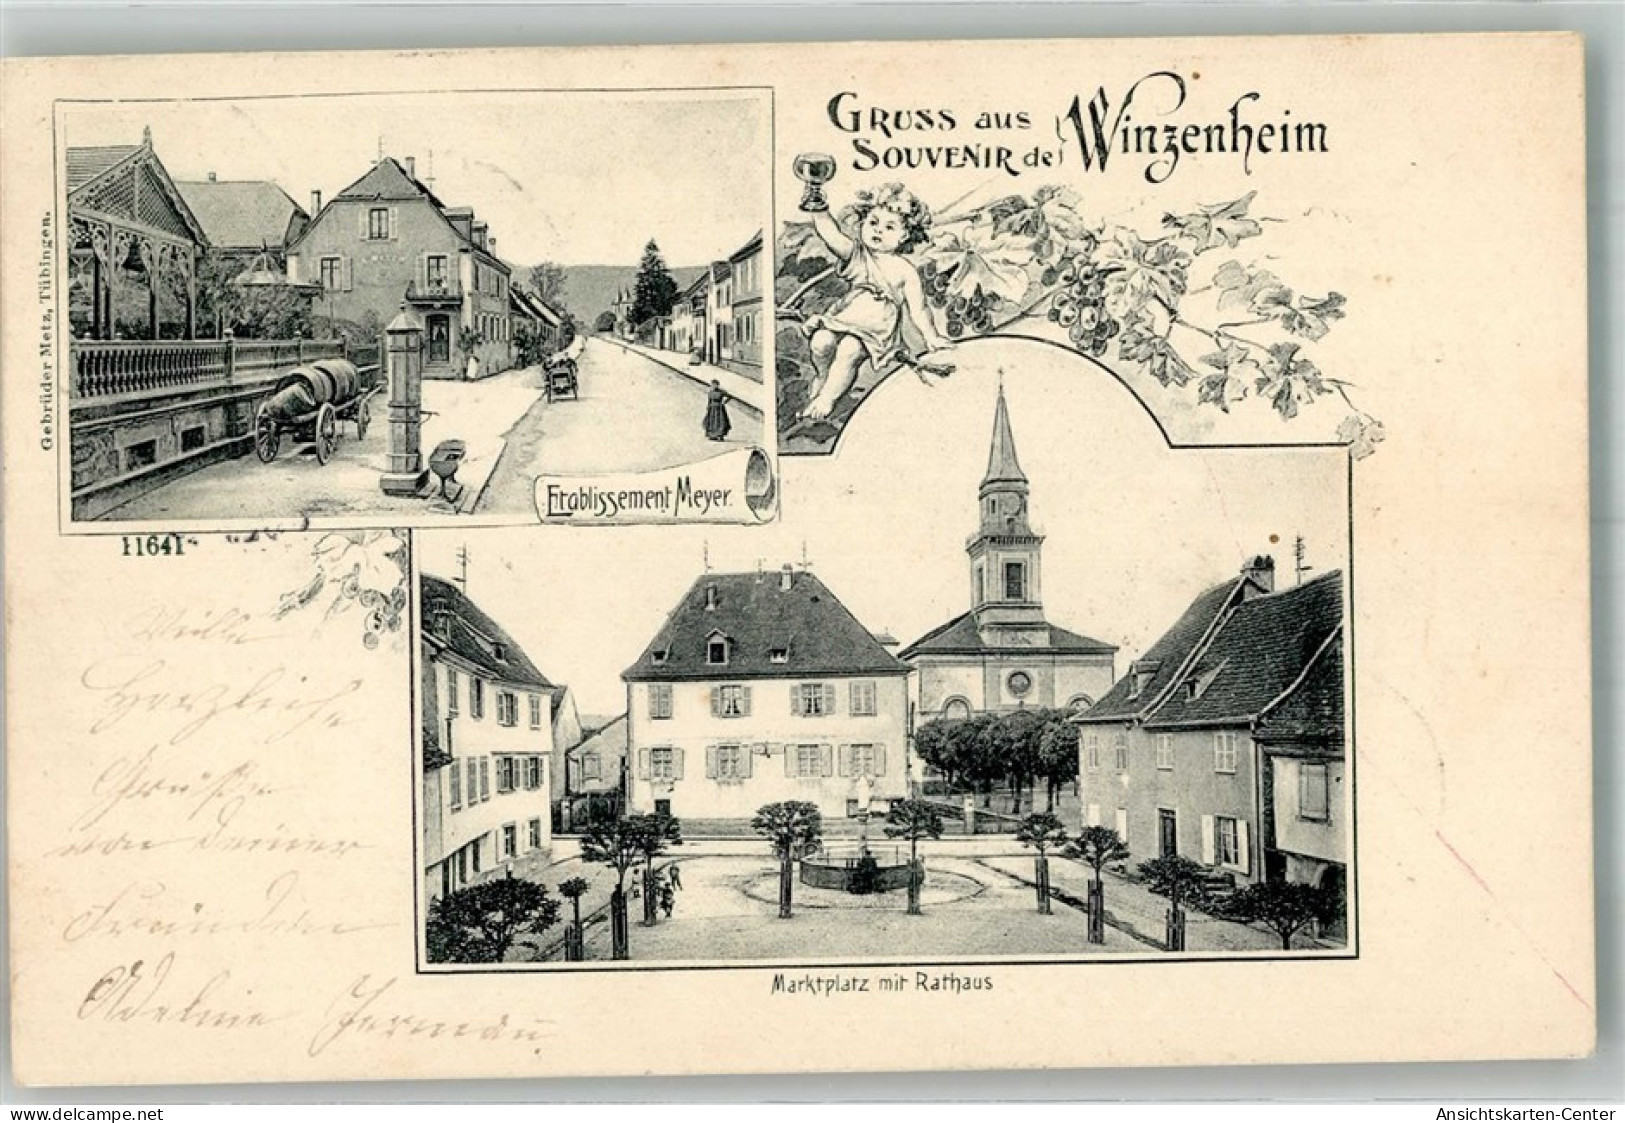 GRUSS aus
SOUVENIR de
Winzenheim
Gebrüder Metz, Tübingen.
Etablissement Meyer.
11641
Viele
Herzliche
Grüße
von deiner
Freundin
Adeline
Marktplatz mit Rathaus
delcampe.net
Ansichtskarten-Center